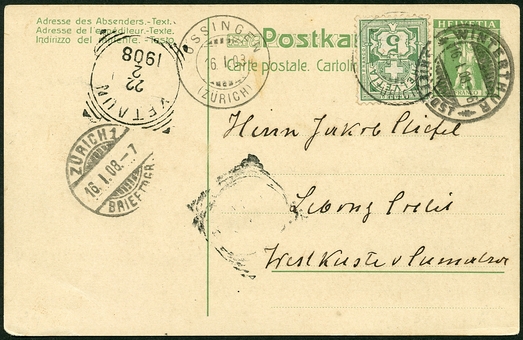 Adresse des Absenders.-Text.
Adresse de l'expéditeur.-Texte.
Indirizzo del mittente.-Testo.
Postkar
Carte postale. Cartoli
HELVETIA
5
OSSINGEN
16.I.08
(ZÜRICH)
WINTERTHUR
22
2
1908
ZÜRICH 1
16.I.08.-7
BRIEFTGR.
Herrn Jakob
Westküste v Sumatra